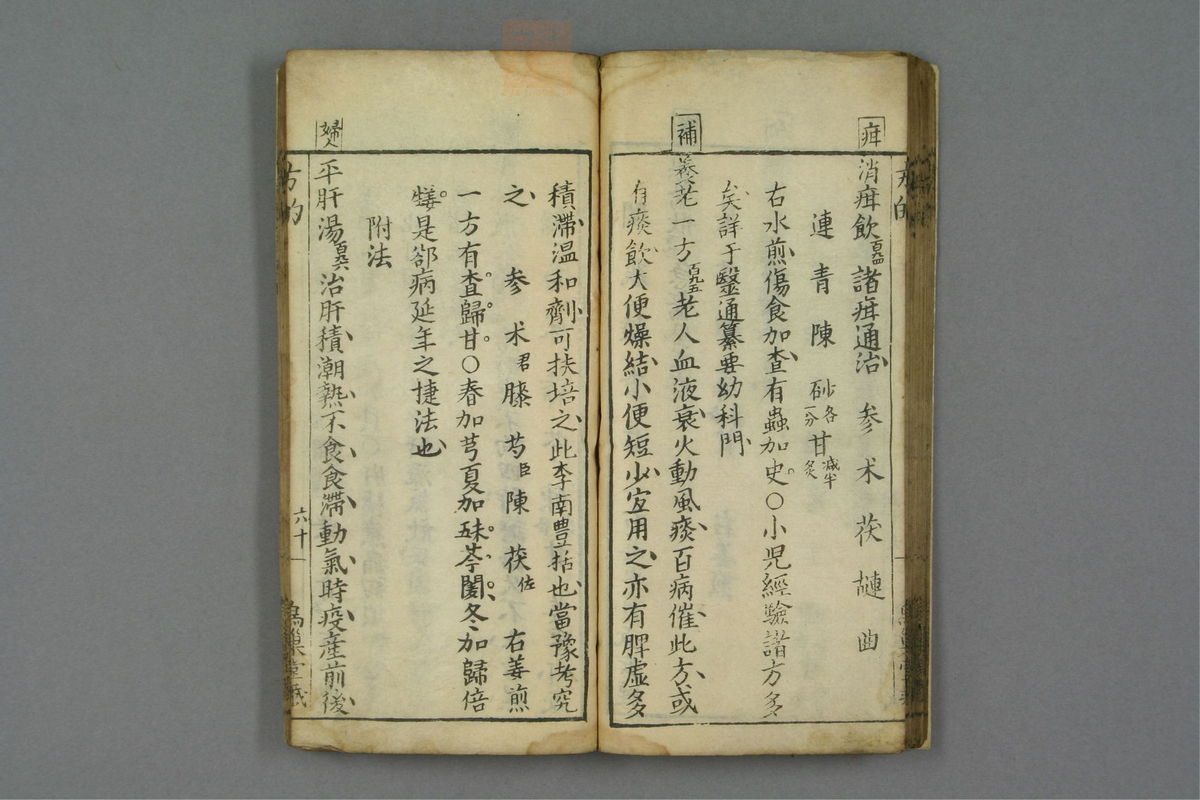 疳
消疳飲百九四諸疳通治 参 朮 茯 樋 曲
連 青 陳 砂各一分甘減半炙
右水煎傷食加查有蟲加史。〇小児經驗諸方多
矣詳于毉通纂要幼科門
補
養老一方百九五老人血液衰火動風痰百病催此方或
有痰飲大便燥結小便短少宜用之亦有脾虚多
積滯温和劑可扶培之此李南豊括也當豫考究
之 参 朮君 膝 芍臣 陳 茯佐 右姜煎
一方有查歸甘〇春加芎夏加五味芩闌冬加歸倍
姜是郤病延年之捷法也
附法
婦人
平肝湯百九六治肝積潮熱不食食滯動氣時疫産前後
方的
六十
爲巢堂藏